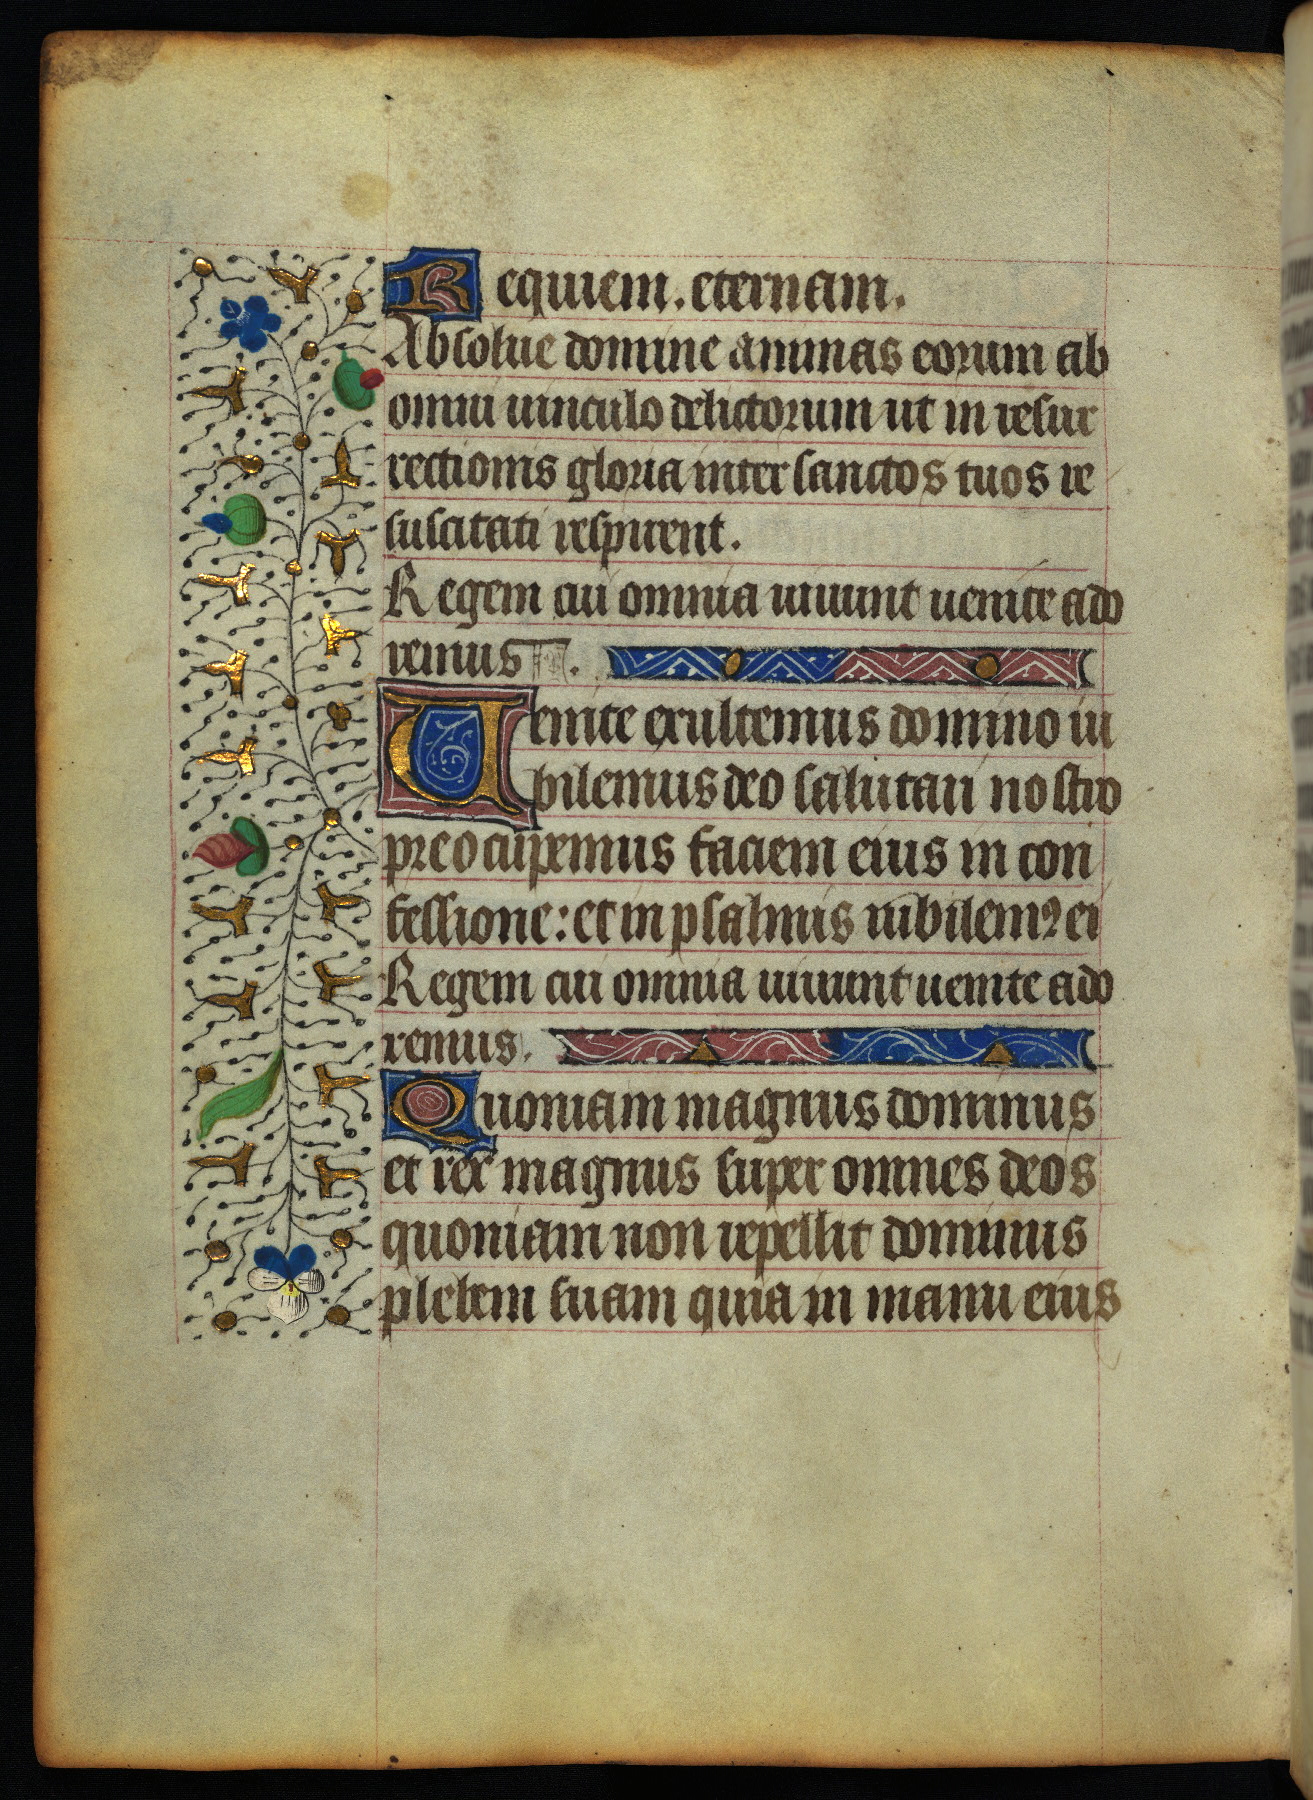 Requiem. eternam.
Absolue domine animas eorum ab
omni uinculo delictorum ut in resur
rectionis gloria inter sanctos tuos re
suscitati respirent.
Regem cui omnia uiuunt uenite ado
remus
Uenite exultemus domino iu
bilemus deo salutari nostro
preocupemus faciem eius in con
fessione: et in psalmis iubilemꝰ ei
Regem cui omnia uiuunt uenite ado
remus.
Quoniam magnus dominus
et rex magnus super omnes deos
quoniam non repellit dominus
plebem suam quia in manu eius